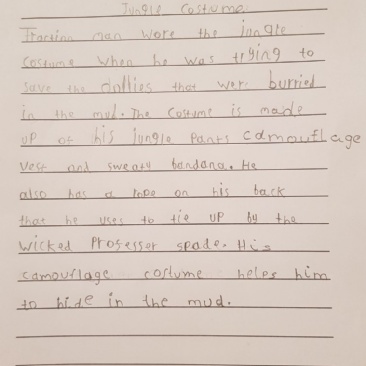 Jungle Costume
Fraction man wore the jungle
costume when he was trying to
save the dollies that were burried
in the mud. The costume is made
up of his jungle pants camouflage
vest and sweaty bandana. He
also has a rope on his back
that he uses to tie up by the
wicked Professor spade. His
camouflage costume helps him
to hide in the mud.